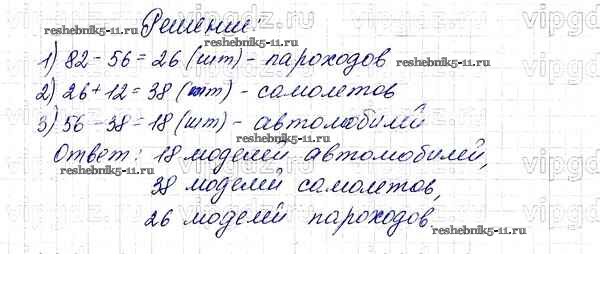 Решение:
1) 82 - 56 = 26 (шт) - пароходов
2) 26 + 12 = 38 (шт) - самолетов
3) 56 - 38 = 18 (шт) - автомобилей
Ответ: 18 моделей автомобилей,
38 моделей самолетов,
26 моделей пароходов.
reshebnik5-11.ru
reshebnik5-11.ru
reshebnik5-11.ru
reshebnik5-11.ru
reshebnik5-11.ru
reshebnik5-11.ru
reshebnik5-11.ru
vipgdz
vipgdz
vipgdz
vipgdz
vipgdz